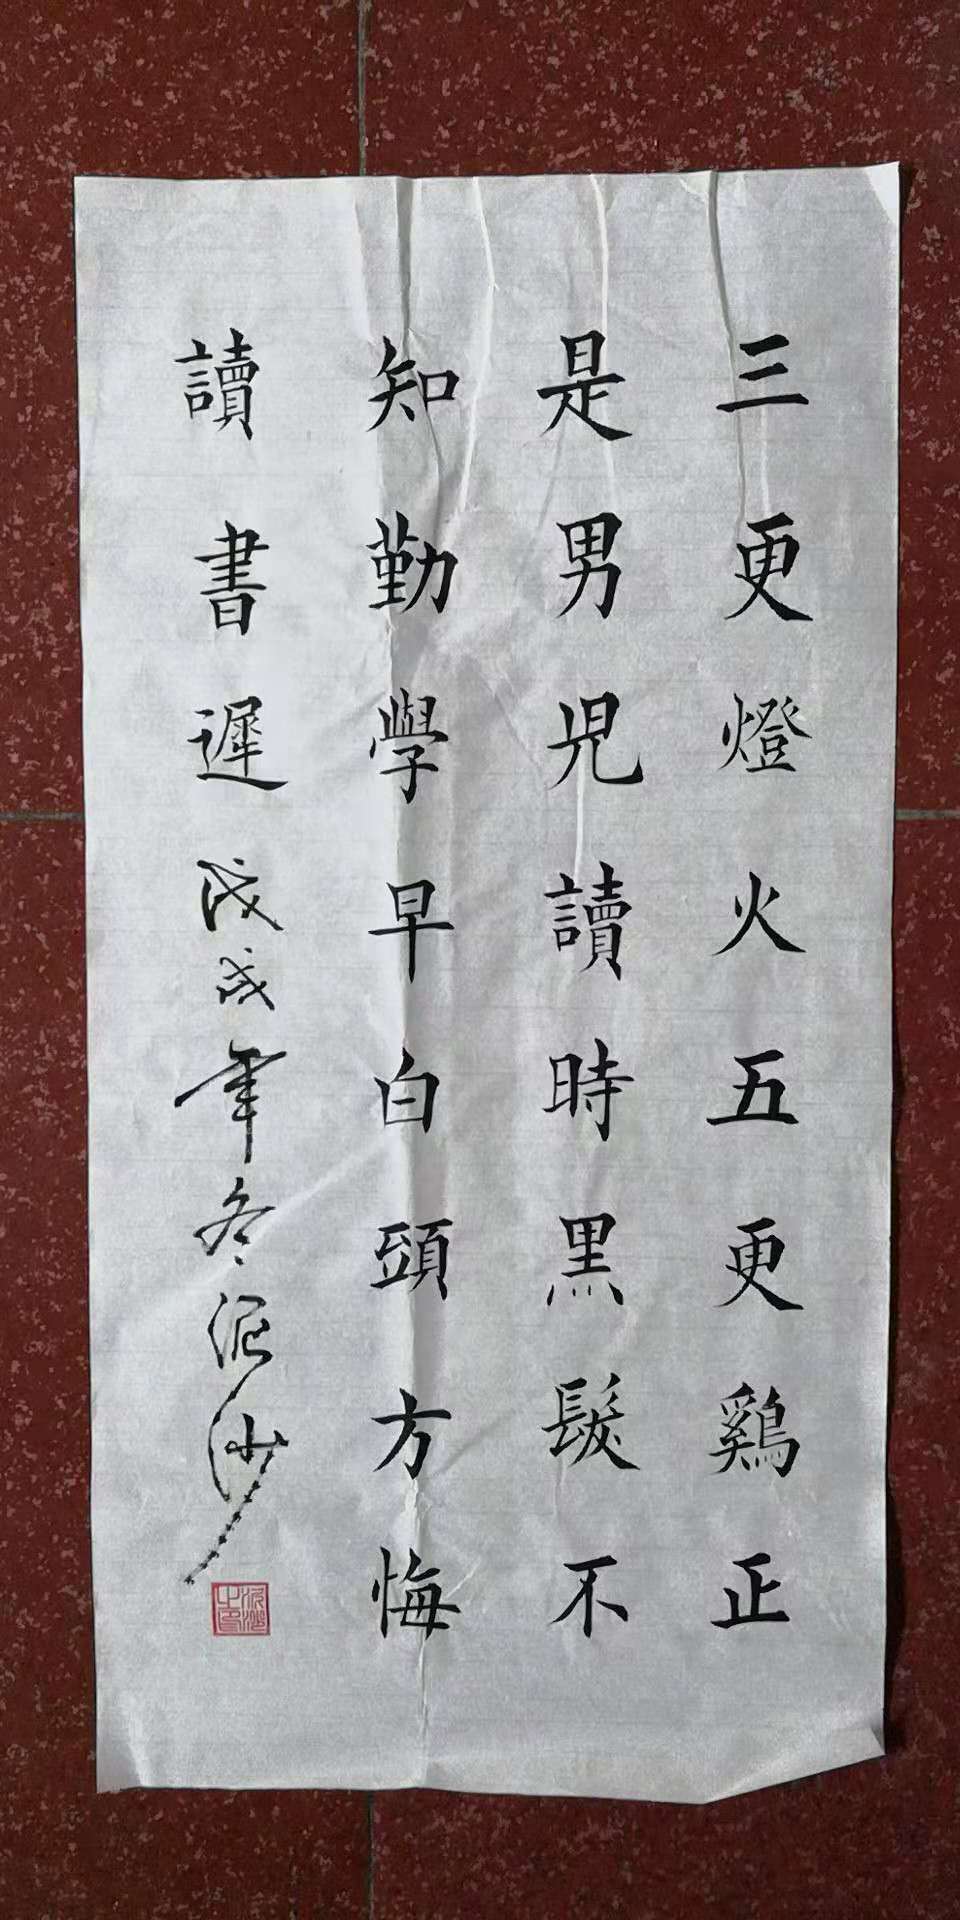 三更燈火五更鷄正
是男児讀時黒髮不
知勤學早白頭方悔
讀書遲戊戌年冬泥沙